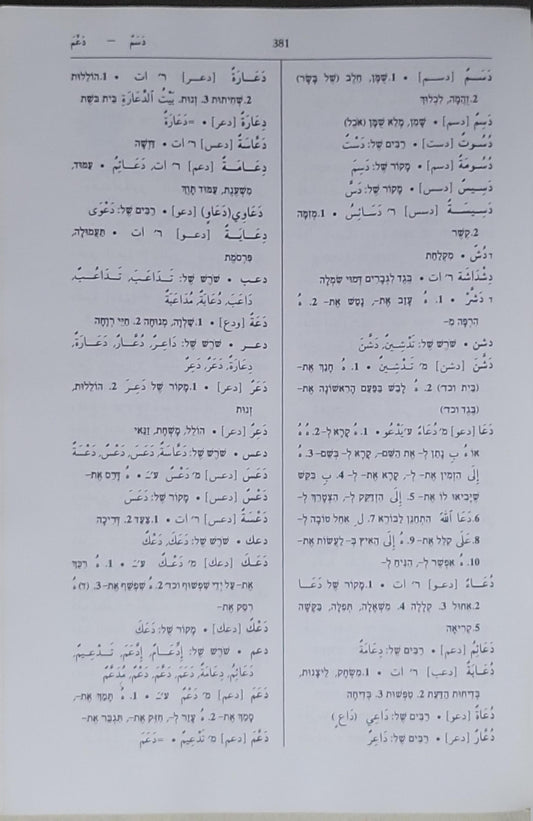 دَسَمٌ — دَعَّمَ
381
دَسَمٌ [دسم] • 1. שֻׁמָּן, חֵלֶב (שֶׁל בָּשָׂר)
2. זֻהֲמָה, לִכְלוּךְ
دَسِمٌ [دسم] • שָׁמֵן, מָלֵא שֻׁמָּן (אֹכֶל)
دُسُوتٌ [دست] • רַבִּים שֶׁל: دَسْتٌ
دُسُومَةٌ [دسم] • מָקוֹר שֶׁל: دَسِمَ
دَسِيسٌ [دسس] • מָקוֹר שֶׁל: دَسَّ
دَسِيسَةٌ [دسس] ר׳ دَسَائِسُ • 1. מְזִמָּה
2. קֶשֶׁר
ד دُشٌّ • מִקְלַחַת
دِشْدَاشَةٌ ר׳ ات • בֶּגֶד לִגְבָרִים דְּמוּי שִׂמְלָה
ד دَشَّرَ • 1. هُ עָזַב אֶת–, נָטַשׁ אֶת– 2. هُ
הִרְפָּה מִ–
دشن • שֹׁרֶשׁ שֶׁל: تَدْشِينٌ, دَشَّنَ
دَشَّنَ [دشن] מ׳ تَدْشِينٌ • 1. هُ חָנַךְ אֶת–
(בַּיִת וכד׳) 2. هُ לָבַשׁ בַּפַּעַם הָרִאשׁוֹנָה אֶת–
(בֶּגֶד וכד׳)
دَعَا [دعو] מ׳ دُعَاءٌ ע׳ يَدْعُو • 1. هُ קָרָא לְ– 2. هُ هُ
אוֹ هُ بِ נָתַן לְ– אֶת הַשֵּׁם–, קָרָא לְ– בְּשֵׁם– 3. هُ
إِلَى הִזְמִין אֶת– לְ–, קָרָא אֶת– לְ– 4. بِ בִּקֵּשׁ
שֶׁיָּבִיאוּ לוֹ אֶת– 5. إِلَى הִזְדַּקֵּק לְ–, הִצְטָרֵךְ לְ–
6. دَعَا اللّٰهَ הִתְחַנֵּן לַבּוֹרֵא 7. لِ אִחֵל טוֹבָה לְ–
8. عَلَى קִלֵּל אֶת– 9. هُ إِلَى הֵאִיץ בְּ– לַעֲשׂוֹת אֶת–
10. هُ אִפְשֵׁר לְ–, הֵנִיחַ לְ–
دُعَاءٌ [دعو] ר׳ ات • 1. מָקוֹר שֶׁל دَعَا
2. אִחוּל 3. קְלָלָה 4. מִשְׁאָלָה, תְּפִלָּה, בַּקָּשָׁה
5. קְרִיאָה
دَعَائِمُ [دعم] • רַבִּים שֶׁל: دِعَامَةٌ
دُعَابَةٌ [دعب] ר׳ ات • 1. מִשְׂחָק, לֵיצָנוּת,
בְּדִיחוּת הַדַּעַת 2. טִפְּשׁוּת 3. בְּדִיחָה
دُعَاةٌ [دعو] • רַבִּים שֶׁל: دَاعِي (دَاعٍ)
دُعَّارٌ [دعر] • רַבִּים שֶׁל: دَاعِرٌ
دَعَارَةٌ [دعر] ר׳ ات • 1. הוֹלֵלוּת
2. שְׁחִיתוּת 3. זְנוּת. بَيْتُ الدَّعَارَةِ בֵּית בֹּשֶׁת
دِعَارَةٌ [دعر] • =دَعَارَةٌ
دَعَّاسَةٌ [دعس] ר׳ ات • דַּוְשָׁה
دِعَامَةٌ [دعم] ר׳ ات, دَعَائِمُ • עַמּוּד,
מִשְׁעֶנֶת, עַמּוּד תָּוֶךְ
دَعَاوِي (دَعَاوٍ) [دعو] • רַבִּים שֶׁל: دَعْوَى
دِعَايَةٌ [دعو] ר׳ ات • תַּעֲמוּלָה,
פִּרְסֹמֶת
دعب • שֹׁרֶשׁ שֶׁל: تَدَاعَبَ, تَدَاعُبٌ,
دَاعَبَ, دُعَابَةٌ, مُدَاعَبَةٌ
دَعَةٌ [ودع] • 1. שַׁלְוָה, מְנוּחָה 2. חַיֵּי רְוָחָה
دعر • שֹׁרֶשׁ שֶׁל: دَاعِرٌ, دُعَّارٌ, دَعَارَةٌ,
دِعَارَةٌ, دَعَرٌ, دَعِرٌ
دَعَرٌ [دعر] • 1. מָקוֹר שֶׁל دَعِرَ 2. הוֹלֵלוּת,
זְנוּת
دَعِرٌ [دعر] • הוֹלֵל, מֻשְׁחָת, זַנַּאי
دعس • שֹׁרֶשׁ שֶׁל: دَعَّاسَةٌ, دَعَسَ, دَعْسٌ, دَعْسَةٌ
دَعَسَ [دعس] מ׳ دَعْسٌ ע׳ــَ • هُ דָּרַס אֶת–
دَعْسٌ [دعس] • מָקוֹר שֶׁל: دَعَسَ
دَعْسَةٌ [دعس] ר׳ ات • 1. צַעַד 2. דְּרִיכָה
دعك • שֹׁרֶשׁ שֶׁל: دَعَكَ, دَعْكٌ
دَعَكَ [دعك] מ׳ دَعْكٌ ע׳ــَ • 1. هُ רִכֵּךְ
אֶת– עַל יְדֵי שִׁפְשׁוּף וכד׳ 2. هُ שִׁפְשֵׁף אֶת– 3. (ד) هُ
רִסֵּק אֶת–
دَعْكٌ [دعك] • מָקוֹר שֶׁל: دَعَكَ
دعم • שֹׁרֶשׁ שֶׁל: إِدِّعَامٌ, إِدَّعَمَ, تَدْعِيمٌ,
دَعَائِمُ, دِعَامَةٌ, دَعَمَ, دَعَّمَ, دَعْمٌ, مُدَعَّمٌ
دَعَمَ [دعم] מ׳ دَعْمٌ ע׳ــَ • 1. هُ תָּמַךְ אֶת–,
סָמַךְ אֶת– 2. هُ עָזַר לְ–, חִזֵּק אֶת–, תִּגְבֵּר אֶת–
دَعَّمَ [دعم] מ׳ تَدْعِيمٌ • =دَعَمَ